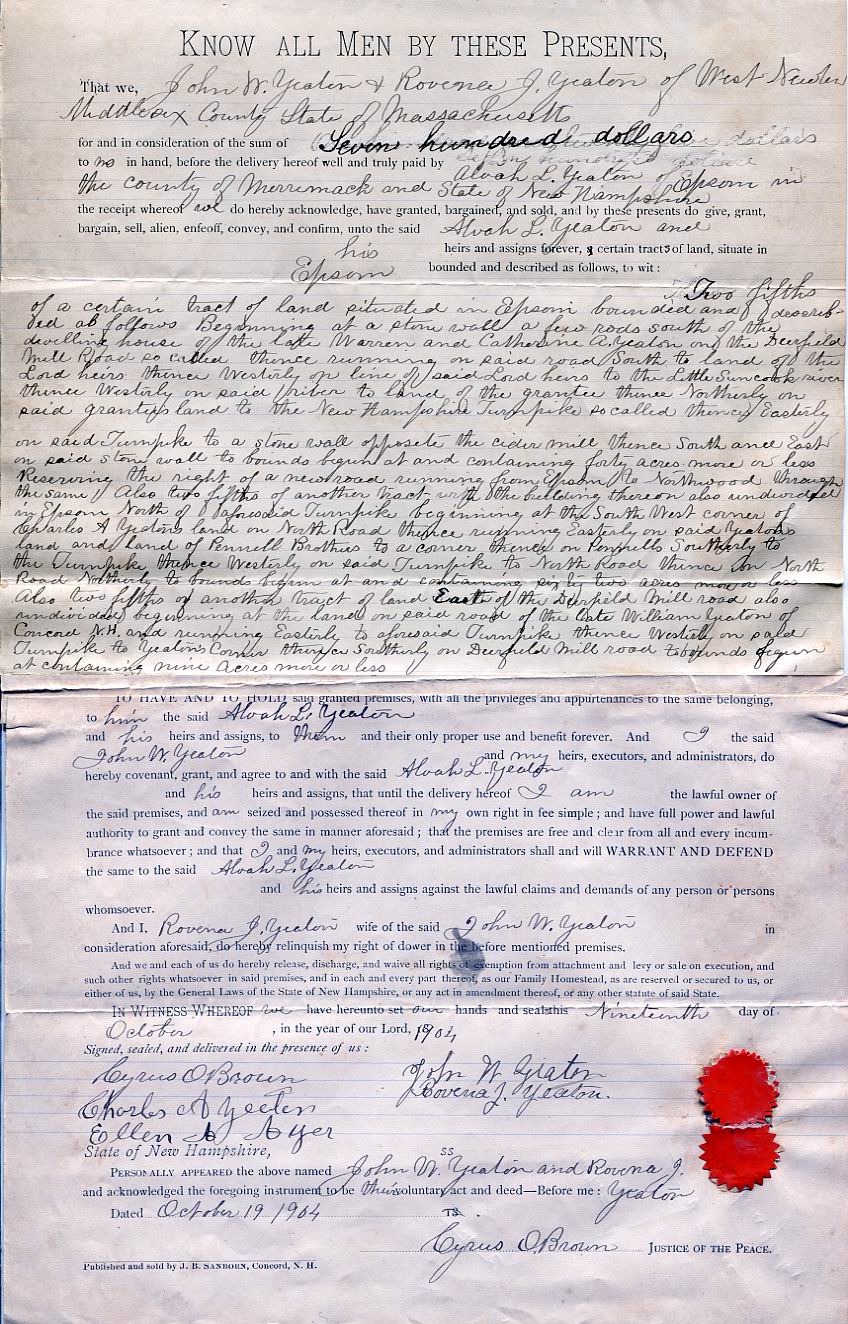 KNOW ALL MEN BY THESE PRESENTS,
That we, John W. Yeaton & Rovena J. Yeaton of West Newton
Middlesex County State of Massachusetts
for and in consideration of the sum of Seven hundred dollars dollars
to us in hand, before the delivery hereof well and truly paid by
Alvah L. Yeaton of Epsom in
the county of Merrimack and State of New Hampshire
the receipt whereof we do hereby acknowledge, have granted, bargained, and sold, and by these presents do give, grant,
bargain, sell, alien, enfeoff, convey, and confirm, unto the said Alvah L. Yeaton and
his heirs and assigns forever, a certain tracts of land, situate in
Epsom bounded and described as follows, to wit:
Two fifths
of a certain tract of land situated in Epsom bounded and describ-
bed as follows Beginning at a stone wall a few rods south of the
dwelling house of the late Warren and Catherine A. Yeaton on the Deerfield
Mill Road so called thence running on said road South to land of the
Lord heirs thence Westerly on line of said Lord heirs to the Little Suncook river
thence Westerly on said river to land of the grantee thence Northerly on
said grantees land to the New Hampshire Turnpike so called thence Easterly
on said Turnpike to a stone wall opposite the cider mill thence South and East
on said stone wall to bounds begun at and containing forty acres more or less
Reserving the right of a new road running from Epsom to Northwood through
the same Also two fifths of another tract with the building thereon also undivided
in Epsom North of aforesaid Turnpike beginning at the South West corner of
Charles A Yeatons land on North Road thence running Easterly on said Yeatons
land and land of Pennell Brothers to a corner thence on Pennells Southerly to
the Turnpike thence Westerly on said Turnpike to North Road thence on North
Road Northerly to bounds begun at and containing sixty two acres more or less
Also two fifths of another tract of land East of the Deerfield Mill road also
undivided beginning at the land on said road of the late William Yeaton of
Concord N.H. and running Easterly to aforesaid Turnpike thence Westerly on said
Turnpike to Yeatons Corner thence Southerly on Deerfield Mill road to bounds begun
at containing nine Acres more or less
TO HAVE AND TO HOLD said granted premises, with all the privileges and appurtenances to the same belonging,
to him the said Alvah L. Yeaton
and his heirs and assigns, to them and their only proper use and benefit forever. And I the said
John W. Yeaton and my heirs, executors, and administrators, do
hereby covenant, grant, and agree to and with the said Alvah L. Yeaton
and his heirs and assigns, that until the delivery hereof I am the lawful owner of
the said premises, and am seized and possessed thereof in my own right in fee simple; and have full power and lawful
authority to grant and convey the same in manner aforesaid; that the premises are free and clear from all and every incum-
brance whatsoever; and that I and my heirs, executors, and administrators shall and will WARRANT AND DEFEND
the same to the said Alvah L. Yeaton
and his heirs and assigns against the lawful claims and demands of any person or persons
whomsoever.
And I, Rovena J. Yeaton wife of the said John W. Yeaton in
consideration aforesaid, do hereby relinquish my right of dower in the before mentioned premises.
And we and each of us do hereby release, discharge, and waive all rights of exemption from attachment and levy or sale on execution, and
such other rights whatsoever in said premises, and in each and every part thereof, as our Family Homestead, as are reserved or secured to us, or
either of us, by the General Laws of the State of New Hampshire, or any act in amendment thereof, or any other statute of said State.
IN WITNESS WHEREOF we have hereunto set our hands and seals this Nineteenth day of
October, in the year of our Lord, 1904
Signed, sealed, and delivered in the presence of us:
Cyrus O Brown John W Yeaton
Charles A Yeaton Rovena J. Yeaton.
Ellen A Ayer
State of New Hampshire, SS
PERSONALLY APPEARED the above named John W. Yeaton and Rovena J.
and acknowledged the foregoing instrument to be their voluntary act and deed—Before me: Yeaton
Dated October 19 1904
Cyrus O. Brown JUSTICE OF THE PEACE.
Published and sold by J. B. SANBORN, Concord, N. H.